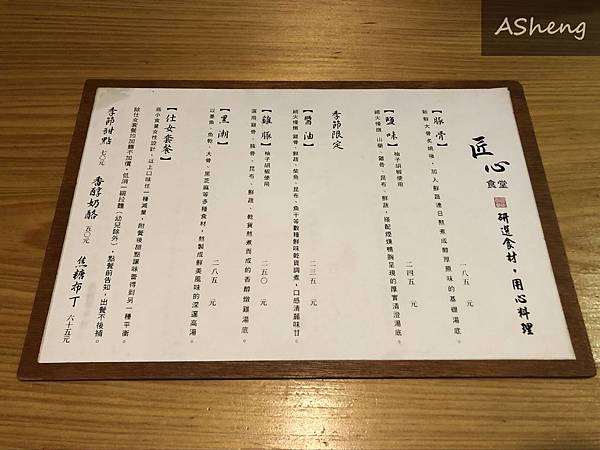 ASheng
匠心
食堂
研選食材，用心料理
【豚骨】
新鮮大骨炙燒後，加入鮮蔬連日熬煮成醇厚原味的基礎湯底。
一八五 元
【鹽味】柚子胡椒使用
細火慢燉，山藥、雞骨、昆布、鮮蔬，搭配煙燻鴨胸呈現的厚實清澄湯底。
二四五 元
季節限定
【醬油】
細火慢燉，雞骨、鮮蔬、柴魚、昆布、魚干等數種鮮味乾貨調煮，口感清麗味甘。
二三五 元
【雞豚】柚子胡椒使用
選用雞骨、豬骨、昆布、鮮蔬、乾貨熬煮而成的香醇燉雞湯底。
二五〇 元
【黑潮】
以墨魚、魚乾、大骨、黑芝麻等多種食材，熬製成鮮美風味的深邃高湯。
二八五 元
【仕女套餐】
為小食量女性設計、以上口味任一種減量，附餐後甜點讓味蕾得到另一種平衡。
除仕女套餐均加麵不加價，低消一碗拉麵（幼兒除外），點餐前告知，出餐不後補。
季節甜點 七〇元 香醇奶酪 五〇元 焦糖布丁 六十五元